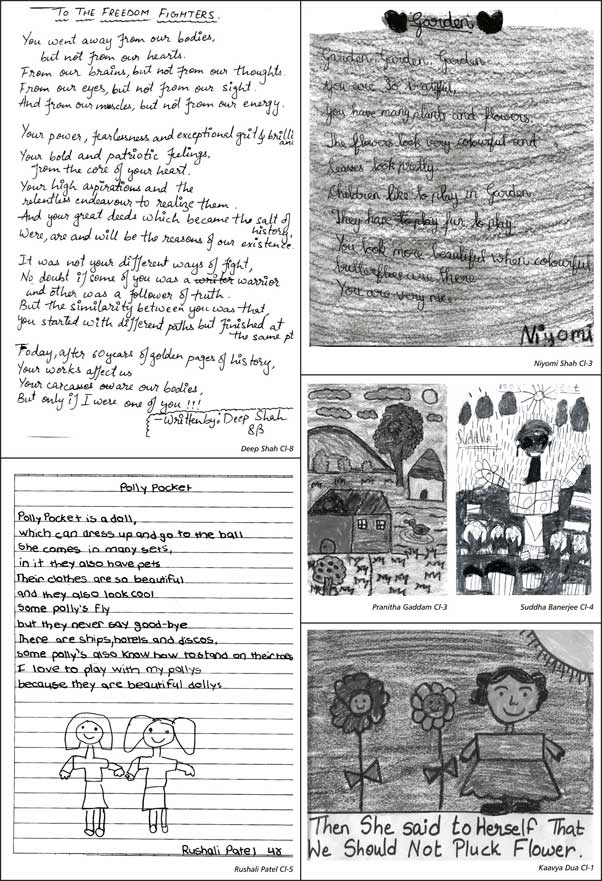 TO THE FREEDOM FIGHTERS.
You went away from our bodies,
but not from our hearts.
From our brains, but not from our thoughts.
From our eyes, but not from our sight.
And from our muscles, but not from our energy.
Your power, fearlessness and exceptional grit & brilli
ance
Your bold and patriotic feelings,
from the core of your heart.
Your high aspirations and the
relentless endeavour to realize them.
And your great deeds which became the salt of
history;
Were, are and will be the reasons of our existence.
It was not your different ways of fight,
No doubt if some of you was a writer warrior
and other was a follower of truth.
But the similarity between you was that,
you started with different paths but finished at
the same pt
Today, after 60 years of golden pages of history,
Your works affect us
Your carcasses aware our bodies,
But only if I were one of you !!!
-Written by: Deep Shah
8B
Deep Shah Cl-8
Garden
Garden, Garden, Garden
You are so beautiful,
You have many plants and flowers.
The flowers look very colourful and
leaves look pretty.
Children like to play in Garden
They have to play fun to play.
You look more beautiful when colourful
butterflies were there
You are very nice
Niyomi
Niyomi Shah Cl-3
Pranitha Gaddam Cl-3
Suddha
Suddha Banerjee Cl-4
Polly Pocket
Polly Pocket is a doll,
which can dress up and go to the ball
She comes in many sets,
in it they also have pets
Their clothes are so beautiful
and they also look cool
Some polly's fly
but they never say good-bye
There are ships, hotels and discos,
some polly's also know how to stand on their toes
I love to play with my pollys
because they are beautiful dollys
Rushali Patel 4x
Rushali Patel Cl-5
Then She said to Herself That
We Should Not Pluck Flower.
Kaavya Dua Cl-1